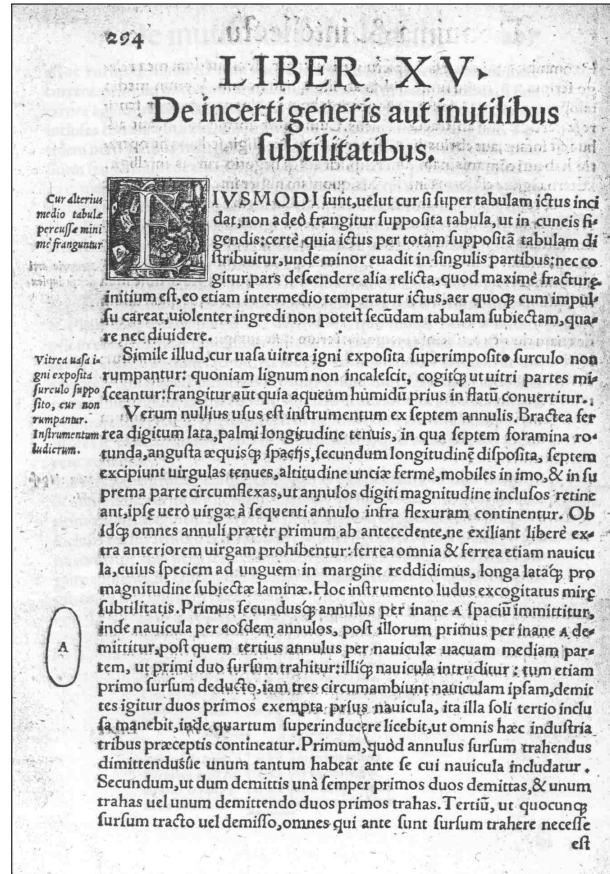 294
LIBER XV.
De incerti generis aut inutilibus
subtilitatibus.
Cur alterius
medio tabulæ
percussæ mini
mè franguntur
EIVSMODI sunt, uelut cur si super tabulam ictus inci
dat, non adeò frangitur supposita tabula, ut in cuneis fi-
gendis: certè quia ictus per totam suppositā tabulam di
stribuitur, unde minor euadit in singulis partibus: nec co
gitur pars descendere alia relicta, quod maximè fracturę
initium est, eo etiam intermedio temperatur ictus, aer quoq; cum impul
su careat, uiolenter ingredi non potest secūdam tabulam subiectam, qua
re nec diuidere.
Vitrea uasa i-
gni exposita
surculo suppo
sito, cur non
rumpantur.
Simile illud, cur uasa uitrea igni exposita superimposito surculo non
rumpantur: quoniam lignum non incalescit, cogitq; ut uitri partes mi-
sceantur: frangitur aūt quia aqueum humidū prius in flatū conuertitur.
Instrumentum
ludicrum.
Verum nullius usus est instrumentum ex septem annulis. Bractea fer
rea digitum lata, palmi longitudine tenuis, in qua septem foramina ro-
tunda, angusta æquisq; spacijs, secundum longitudinē disposita, septem
excipiunt uirgulas tenues, altitudine unciæ fermè, mobiles in imo, & in su
prema parte circumflexas, ut annulos digiti magnitudine inclusos retine
ant, ipsę uerò uirgæ à sequenti annulo infra flexuram continentur. Ob
idq; omnes annuli præter primum ab antecedente, ne exiliant liberè ex-
tra anteriorem uirgam prohibentur: ferrea omnia & ferrea etiam nauicu
la, cuius speciem ad unguem in margine reddidimus, longa lataq; pro
magnitudine subiectæ laminæ. Hoc instrumento ludus excogitatus mirę
subtilitatis. Primus secundusq; annulus per inane A spaciū immittitur,
inde nauicula per eosdem annulos, post illorum primus per inane A de-
mittitur, post quem tertius annulus per nauiculæ uacuam mediam par-
tem, ut primi duo sursum trahitur: illiq; nauicula intruditur: tum etiam
primo sursum deducto, iam tres circumambiunt nauiculam ipsam, demit
tes igitur duos primos exempta prius nauicula, ita illa soli tertio inclu
sa manebit, inde quartum superinducere licebit, ut omnis hæc industria
tribus præceptis contineatur. Primum, quòd annulus sursum trahendus
dimittendusúe unum tantum habeat ante se cui nauicula includatur.
Secundum, ut dum demittis unà semper primos duos demittas, & unum
trahas uel unum demittendo duos primos trahas. Tertiū, ut quocunq;
sursum tracto uel demisso, omnes qui ante sunt sursum trahere necesse
est
A